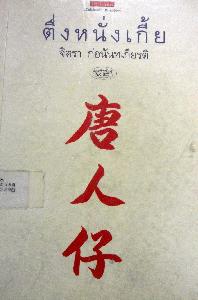 ตึ่งหนั่งเกี้ย
จิตรา ก่อนันทเกียรติ
唐
人
仔